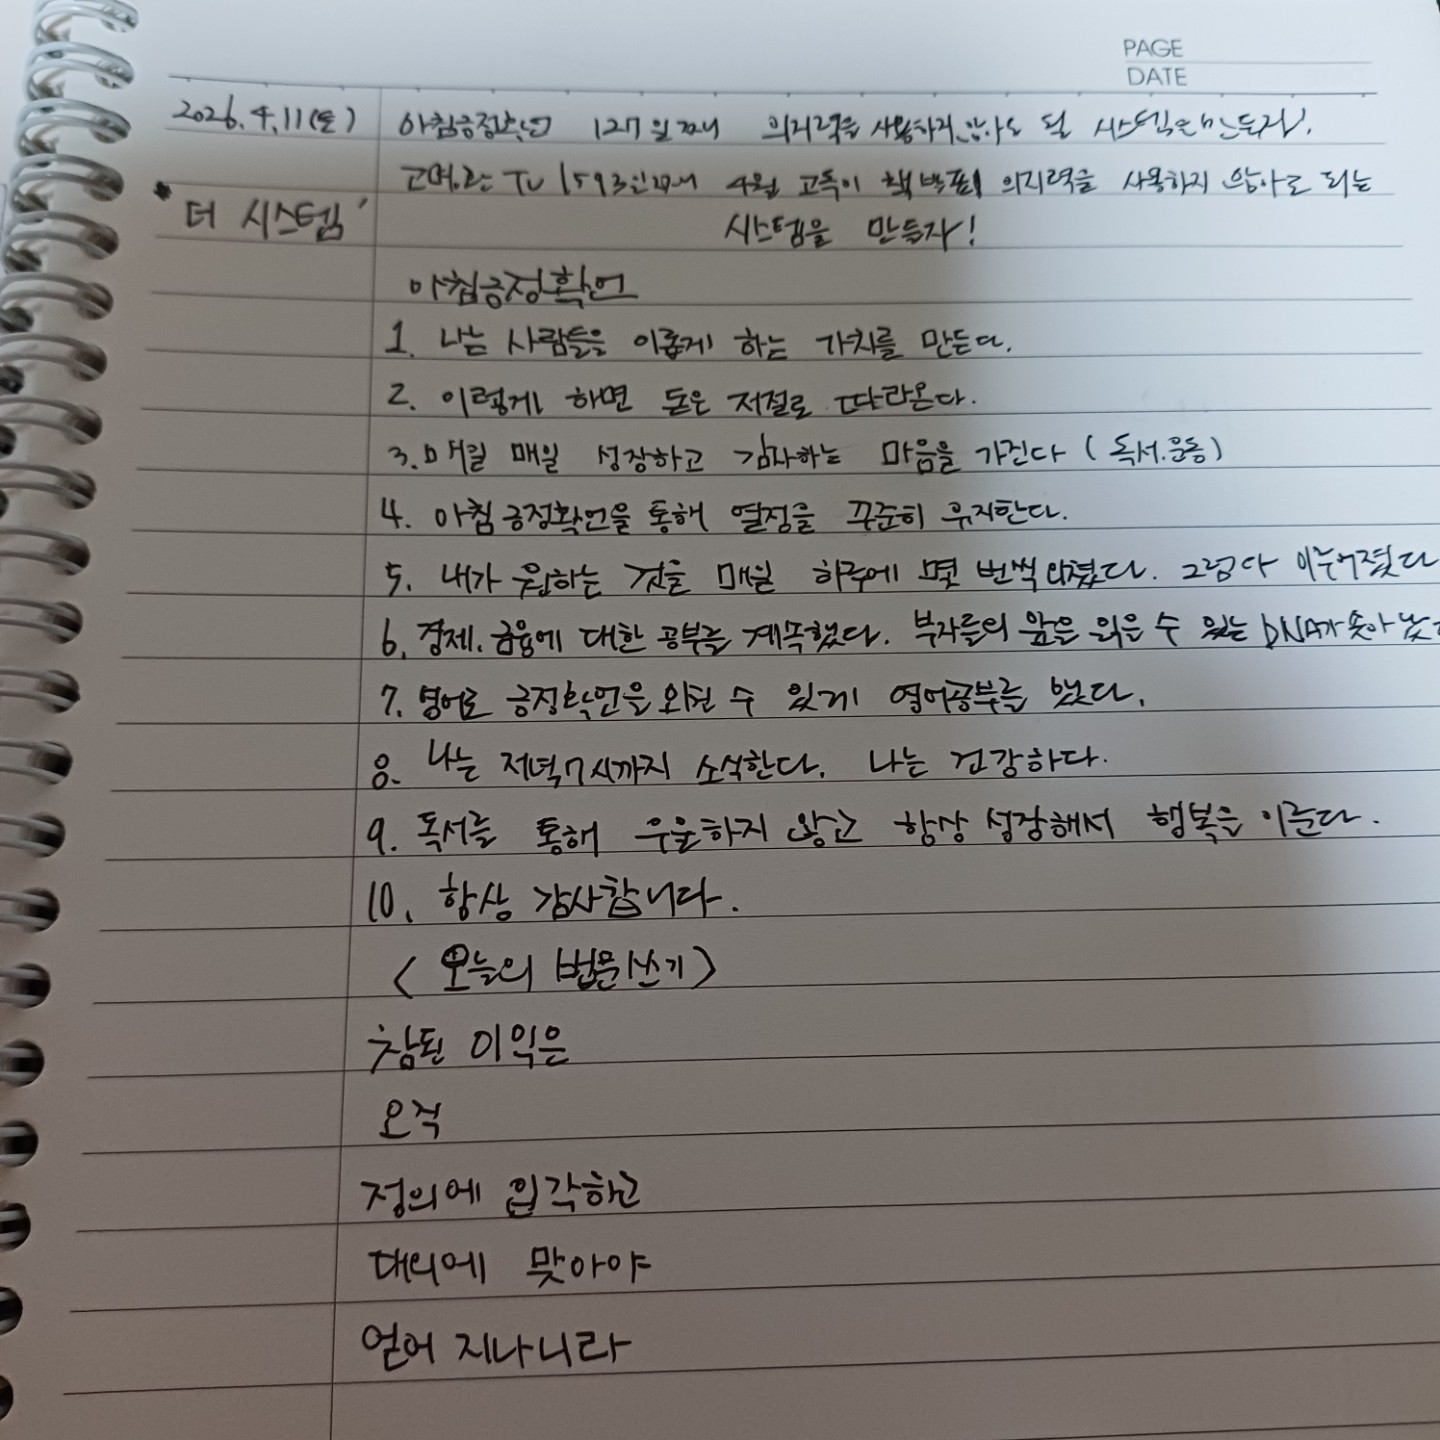 PAGE
DATE
2026. 4. 11 (토) 아침긍정확언 127일째 의지력을 사용하지 않아도 될 시스템을 만들자!
고명환 TV 1593일째 4월 고독이 책 박프 의지력을 사용하지 않아도 되는
'더 시스템' 시스템을 만들자!
아침긍정확언
1. 나는 사람들을 이롭게 하는 가치를 만든다.
2. 이렇게 하면 돈은 저절로 따라온다.
3. 매일 매일 성장하고 감사하는 마음을 가진다 (독서.운동)
4. 아침 긍정확언을 통해 열정을 꾸준히 유지한다.
5. 내가 원하는 것을 매일 하루에 몇 번씩 외쳤다. 그렇다 이루어졌다
6. 경제.금융에 대한 공부를 계속했다. 부자들의 앎은 읽을 수 있는 DNA가 솟아 났
7. 영어로 긍정확언을 외칠 수 있게 영어공부를 했다.
8. 나는 저녁 7시까지 소식한다. 나는 건강하다.
9. 독서를 통해 우울하지 않고 항상 성장해서 행복을 이룬다.
10. 항상 감사합니다.
< 오늘의 법문쓰기 >
참된 이익은
오직
정의에 입각하고
대의에 맞아야
얻어 지나니라